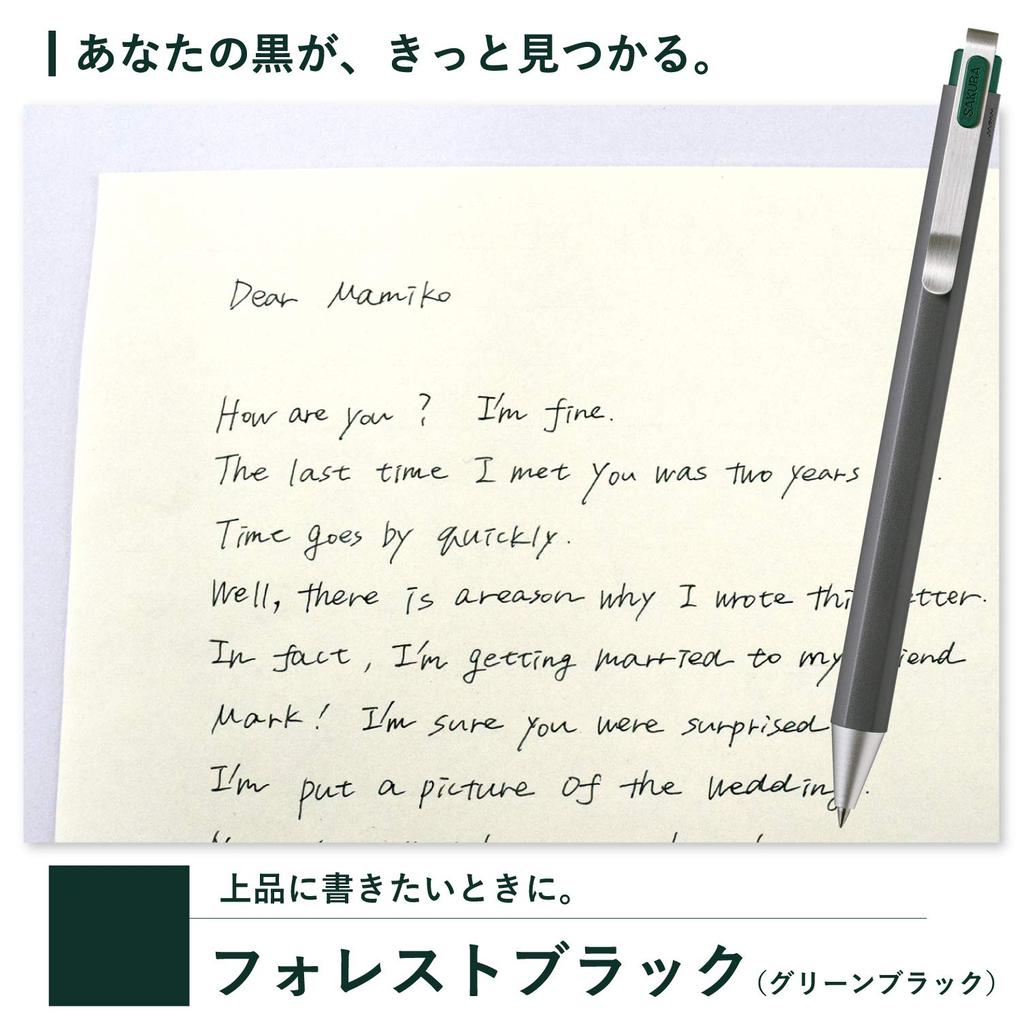 あなたの黒が、きっと見つかる。
SAKURA
Dear Mamiko
How are you ? I'm fine.
The last time I met you was two years .
Time goes by quickly.
Well, there is a reason why I wrote thi etter.
In fact, I'm getting married to my iend
Mark! I'm sure you were surprised
I'm put a picture of the wedding.
上品に書きたいときに。
フォレストブラック(グリーンブラック)